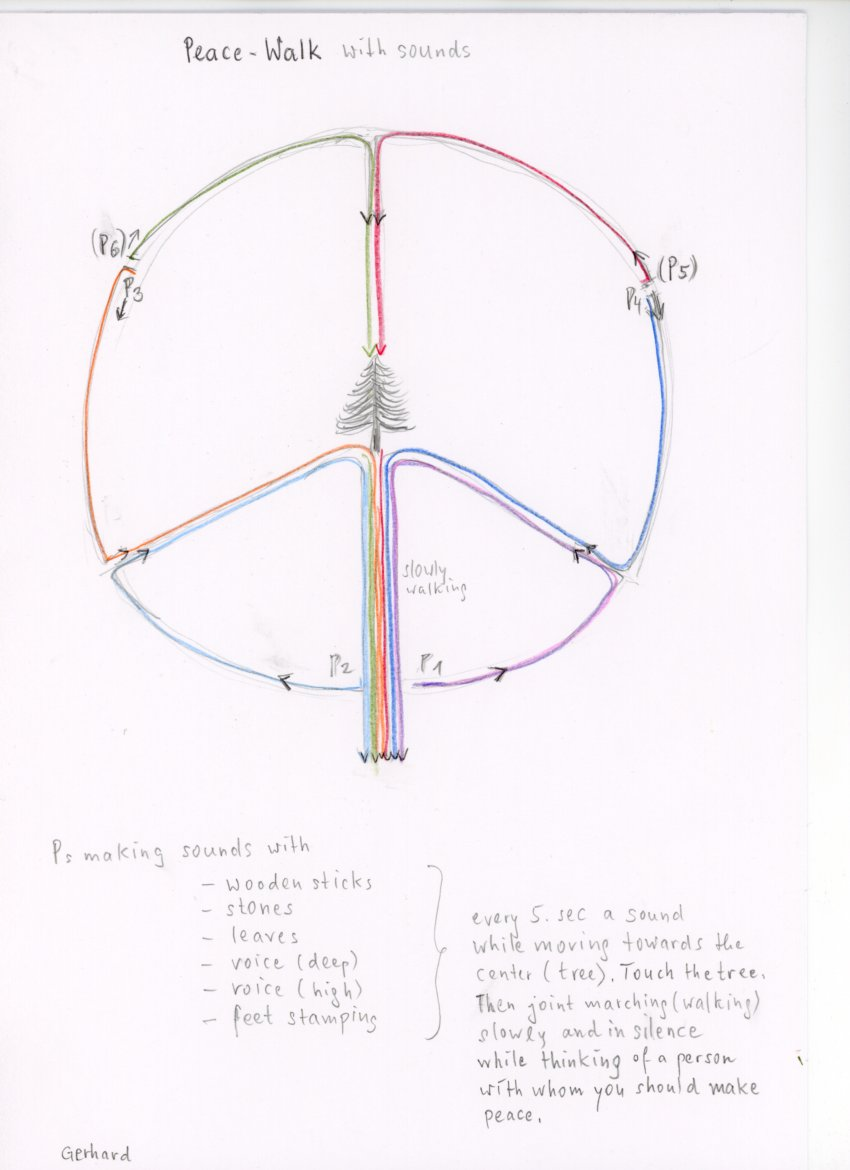 Peace-Walk with sounds
(P6)
P3
(P5)
P4
slowly
walking
P2
P1
Ps making sounds with
- wooden sticks
- stones
- leaves
- voice (deep)
- voice (high)
- feet stamping
every 5. sec a sound
while moving towards the
center (tree). Touch the tree.
Then joint marching (walking)
slowly and in silence
while thinking of a person
with whom you should make
peace.
Gerhard